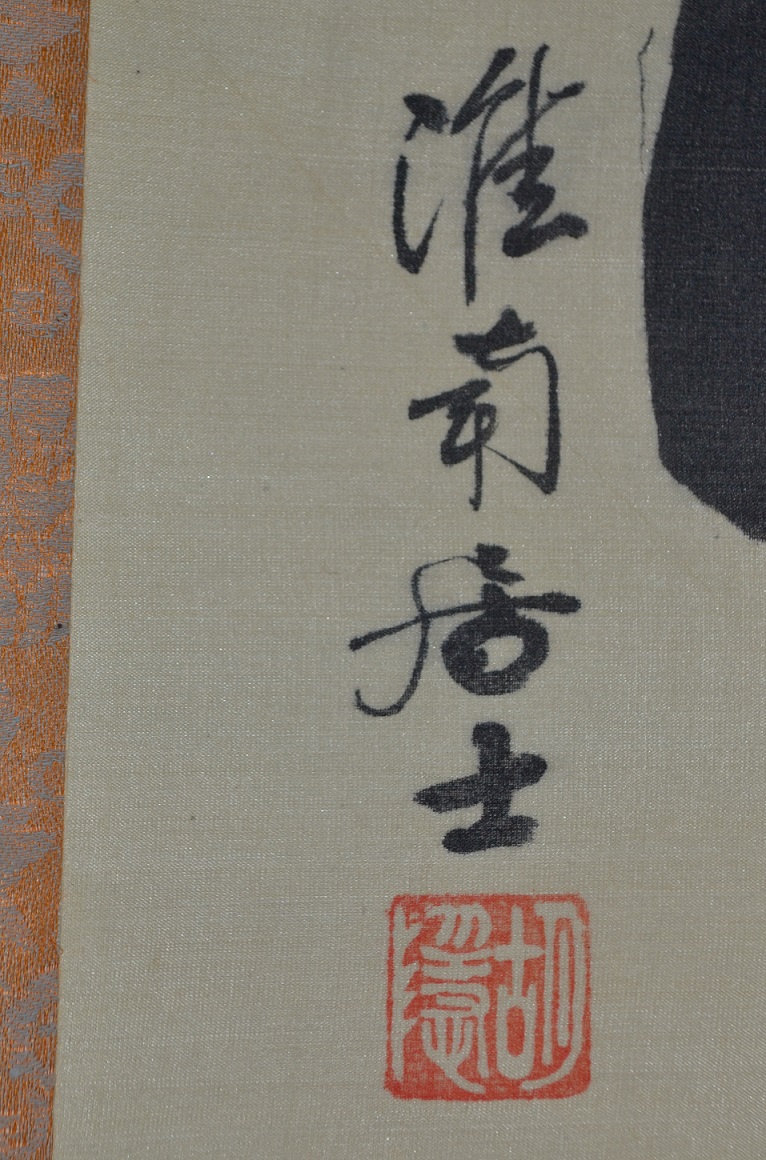 淮南居士
胡隱